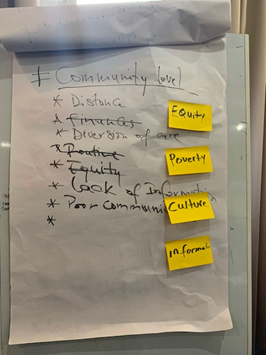 # Community level
* Distance
* Finances
* Diversion of care
* Routine
* Equity
* Lack of Informati
* Poor communi
*
Equity
Poverty
Culture
informat